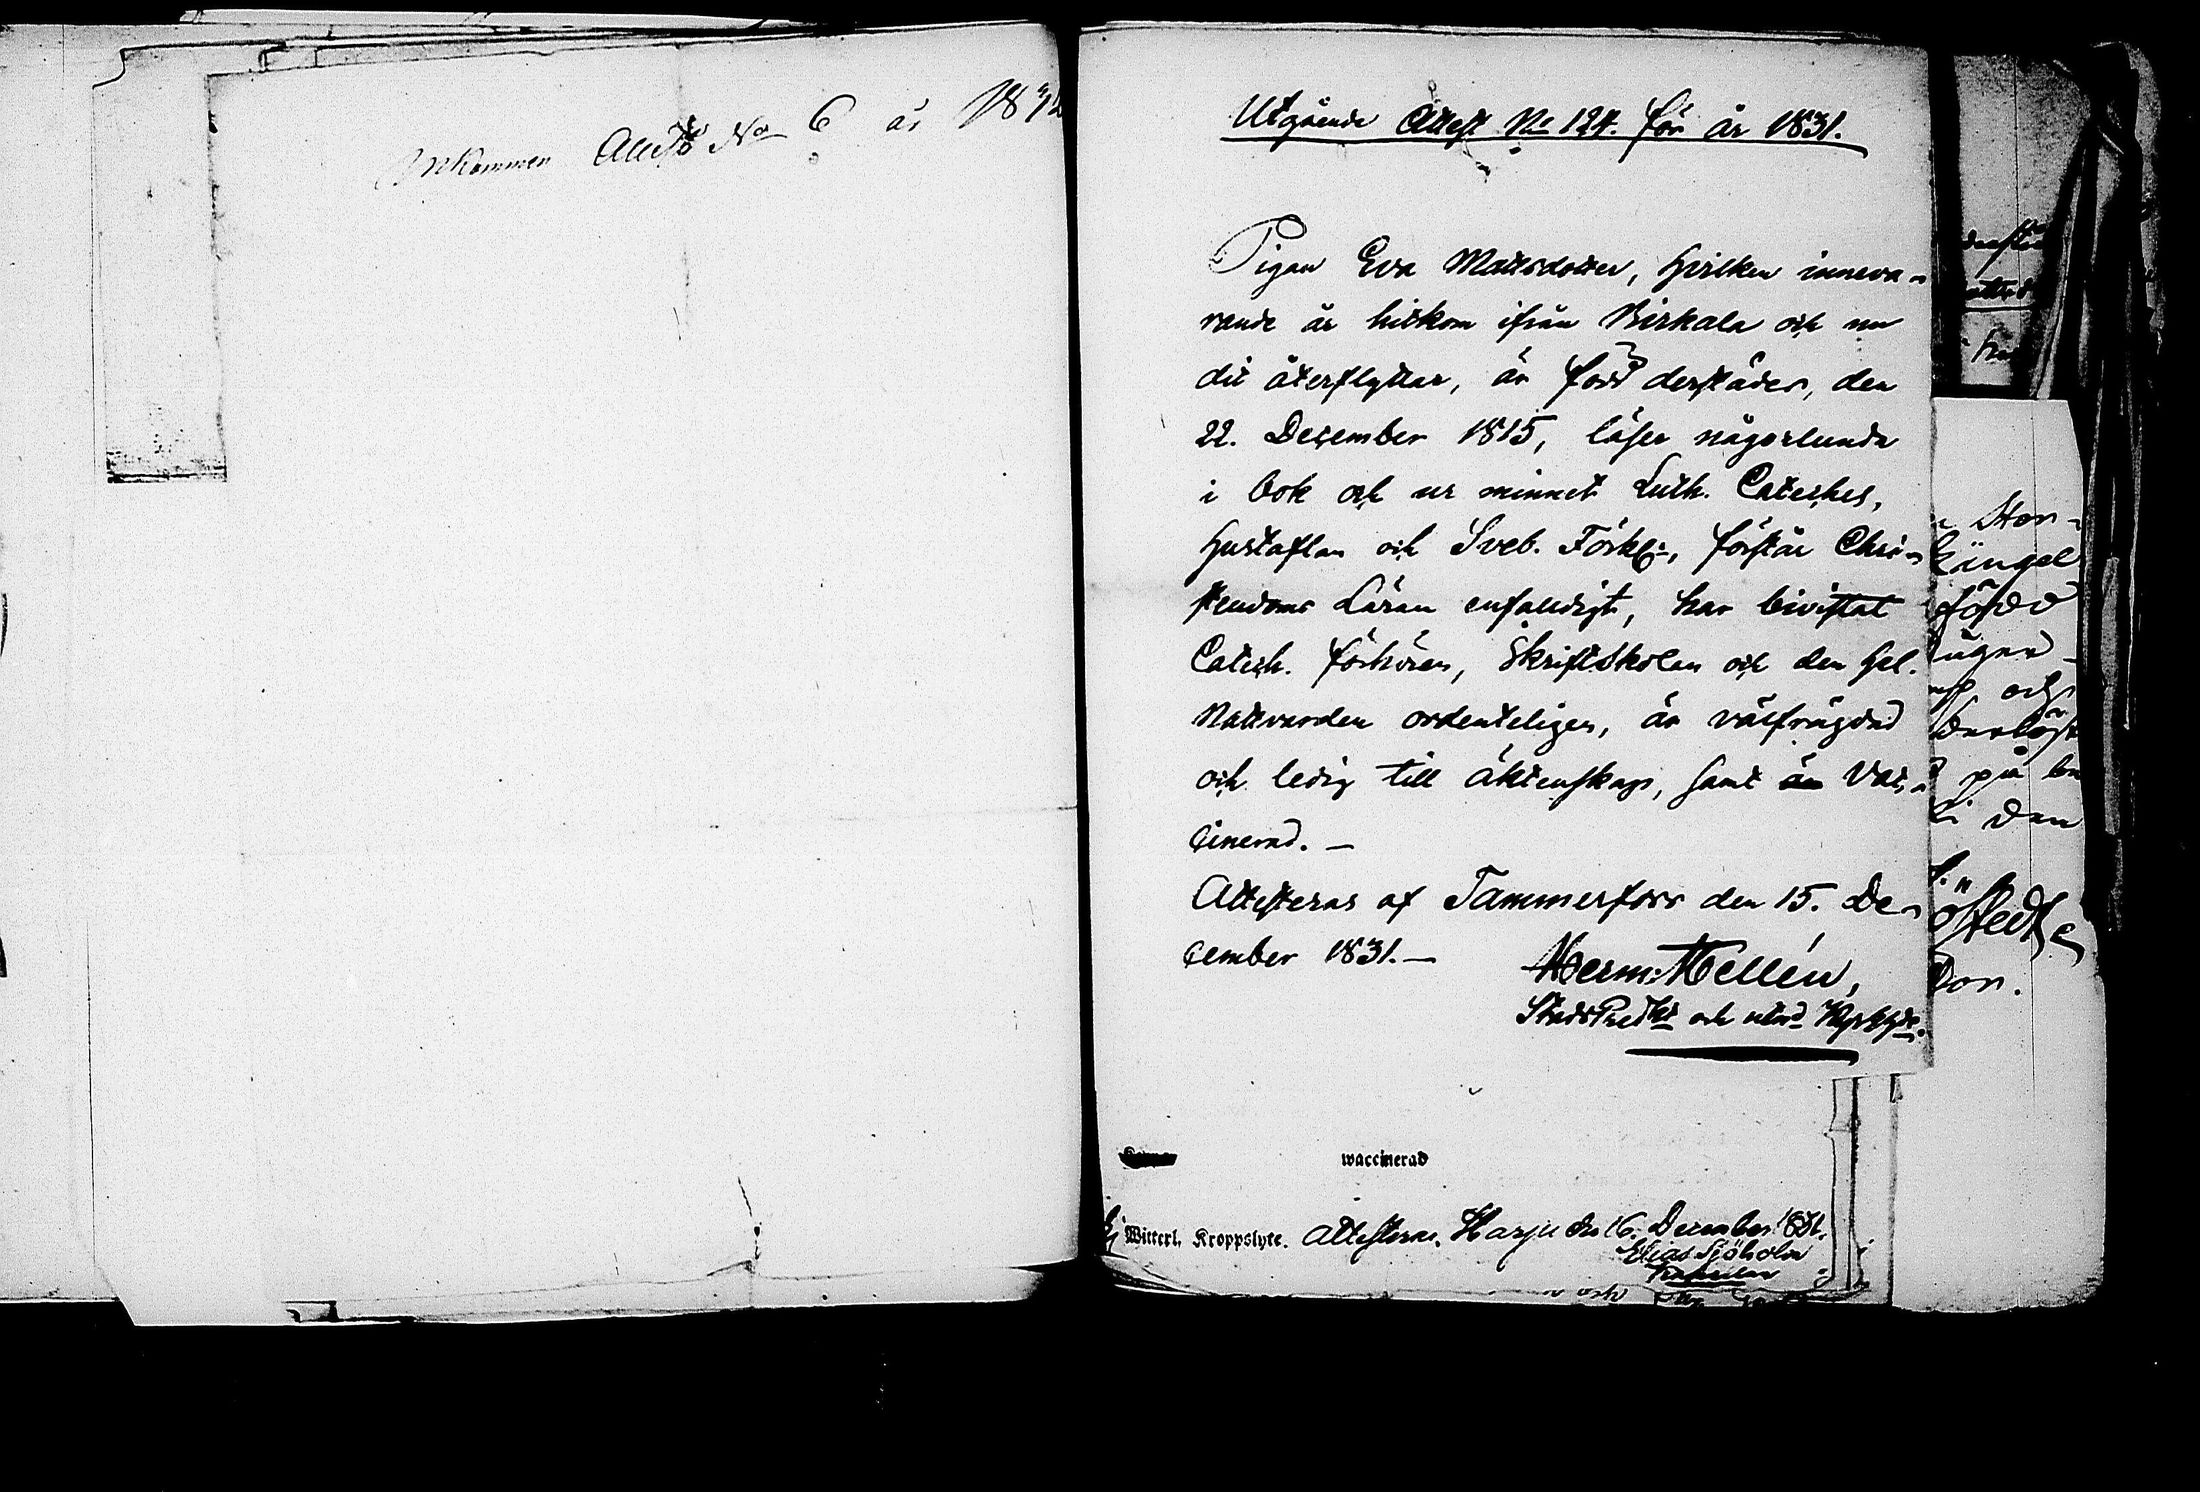 Inkommen Attest No 6 år 1832
Utgående Attest No 124. för år 1831.
Pigan Eva Mattsdotter, hvilken inneva-
rande år hitkom ifrån Birkala och nu
dit återflyttar, är född derstädes, den
22. December 1815, läser någorlunda
i bok och ur minnet Luth. Cateches,
Hustaflan och Sveb. Förkl:, förstår Chri-
stendoms Läran enfaldigt, har bivistat
Catech. förhören, Skriftskolan och den Hel.
Nattvarden ordenteligen, är välfrägdad
och ledig till äktenskap, samt är Vac-
cinerad. —
Attesteras af Tammerfors den 15. De-
cember 1831. —
Herm: Hellén,
StadsPredkt och Kyrkhde.
waccinerad
Ej Witterl. Kroppslyte. Attesteras. Harju den 16. December 1831.
Elias Sjöholm
och
Stor-
Küngel
född
och
på
den